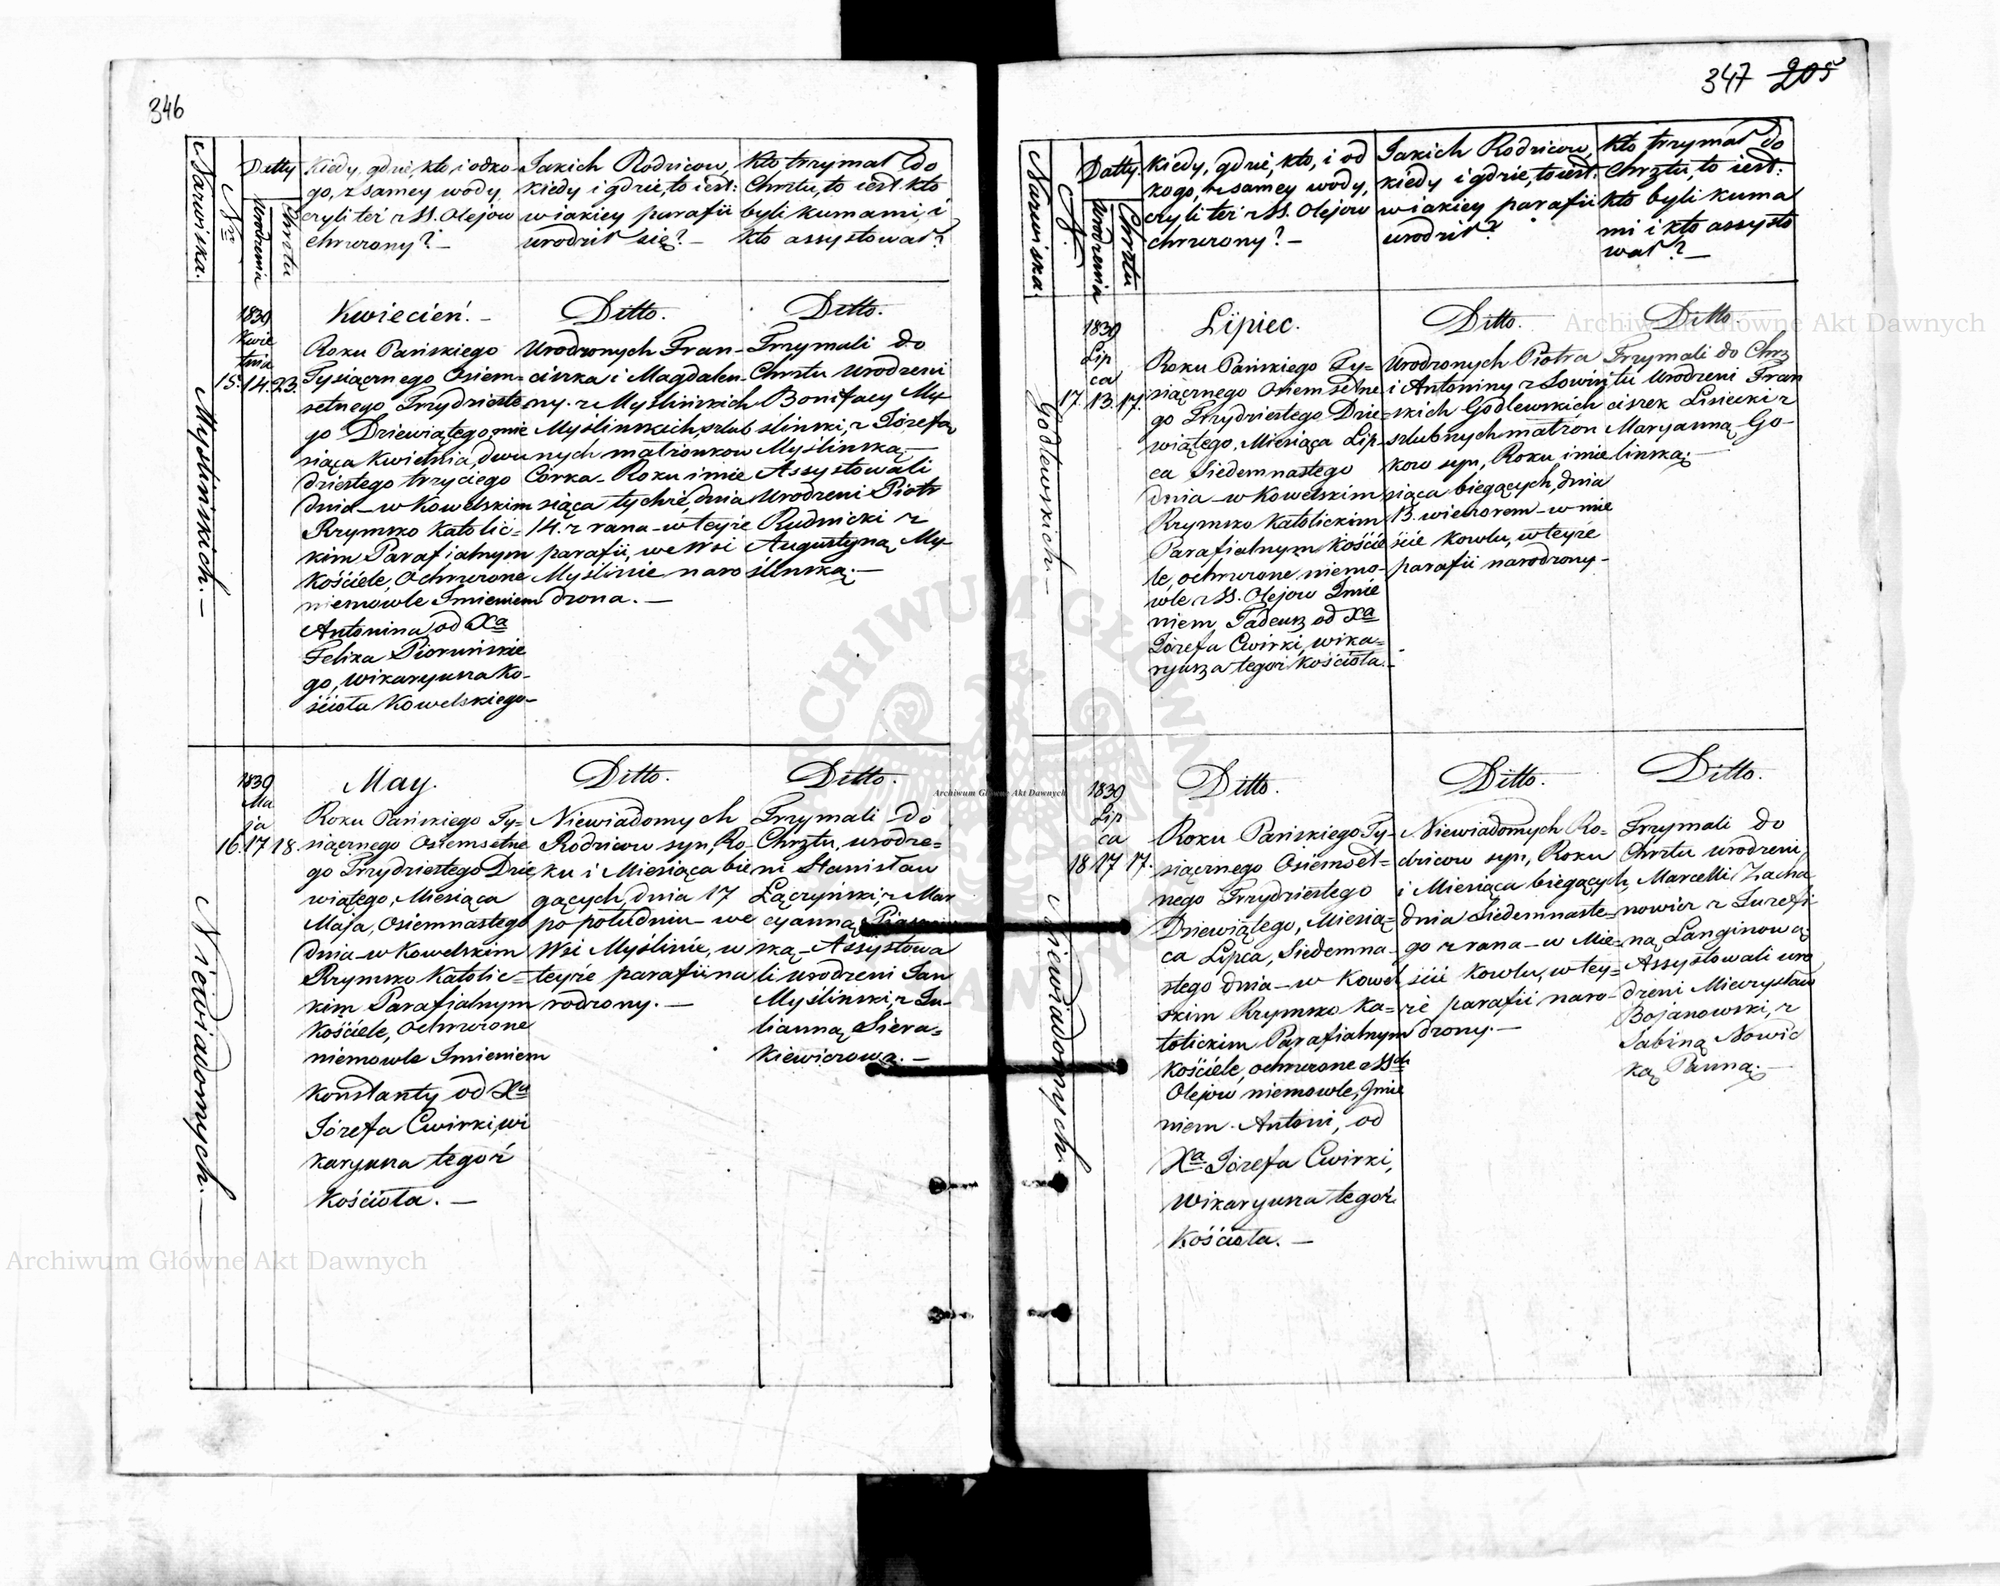 346
Nazwiska.
Nro
Datty
Urodzenia
Chrztu
Kiedy, gdzie, kto i odko-
go, z samey wody,
czyli też z SS. Olejow
chrzczony? —
Jakich Rodzicow,
kiedy i gdzie, to iest:
w iakiey parafii
urodził się? —
Kto trzymał do
Chrztu, to iest kto
byli kumami, i
kto assystował?
Myślinskich. —
1839
Kwie
tnia
15. 14. 23.
Kwiecień. —
Roku Pańskiego
Tysiącznego Osiem=
setnego Trzydzieste
go Dziewiątego, mie
siąca Kwietnia, dwu
dziestego trzyciego
dnia — w Kowelskim
Rzymsko Katolic=
kim Parafialnym
Kościele, Ochrzczone
niemowle Imieniem
Antonina, od Xa
Felixa Piorunskie
go, wikaryusza Ko-
ścioła Kowelskiego —
Ditto.
Urodzonych Fran-
ciszka i Magdalen-
ny z Myślińskich
Myślinskich, szlub
nych małżonkow
Corka — Roku i mie
siąca tychże, dnia
14. z rana — w teyże
parafii, we Wsi
Myślinie naro
dzona. —
Ditto.
Trzymali do
Chrztu Urodzeni
Bonifacy My-
ślinski, z Józefą
Myślinską —
Assystowali
Urodzeni Piotr
Rudnicki z
Augustyną My-
ślinską. —
Niewiadomych. —
1839
Ma
ja
16. 17 18.
May.
Roku Pańskiego Ty=
siącznego Osiemsetne
go Trzydziestego Dzie
wiątego, Miesiąca
Maja, Osiemnastego
dnia — w Kowelskim
Rzymsko Katolic=
kim Parafialnym
Kościele, Ochrzczone
niemowle Imieniem
Konstanty od Xa
Józefa Cwirki, wi
karyusza tegoż
Kościoła. —
Ditto.
Niewiadomych
Rodzicow syn, Ro-
ku i Miesiąca bie
gących, dnia 17
po południu — we
Wsi Myślinie, w
teyże parafii na
rodzony. —
Ditto.
Trzymali do
Chrztu, urodze=
ni Stanisław
Łączyński, z Mar
cyanną
ską — Assystowa
li urodzeni Jan
Myślinski, z Ju-
lianną Siera=
kiewiczową. —
347 205
Nazwiska.
N.
Datty.
Urodzenia
Chrztu
Kiedy, gdzie, kto, i od
kogo, z samey wody,
czyli też z SS. Olejow
chrzczony? —
Jakich Rodzicow
kiedy i gdzie, to iest:
w iakiey parafii
urodził?
Kto trzymał do
Chrztu, to iest:
kto byli kuma
mi i kto assysto
wał? —
Godlewskich. —
1839
Lip
ca
17. 13. 17.
Lipiec.
Roku Pańskiego Ty=
siącznego Osiemsetne
go Trzydziestego Dzie=
wiątego, Miesiąca Lip-
ca Siedemnastego
dnia — w Kowelskim
Rzymsko Katolickim
Parafialnym Koście
le, ochrzczone niemo-
wle z SS. Olejow Imie
niem Tadeusz od Xa
Józefa Cwirki, wika=
ryusza tegoż Kościoła. —
Ditto.
Urodzonych Piotra
i Antoniny z Sowin
skich Godlewskich
szlubnych małżon
kow syn, Roku i mie
siąca biegących, dnia
13. wieczorem — w mie
ście Kowlu, w teyże
parafii narodzony —
Ditto.
Trzymali do Chrz
tu Urodzeni Fran
ciszek Lisiecki z
Maryanną Go-
linską; —
Niewiadomych.
1839
Lip
ca
18 17 17.
Ditto.
Roku Pańskiego Ty-
siącznego Osiemset=
nego Trzydziestego
Dziewiątego, Miesią=
ca Lipca, Siedemna-
stego dnia — w Kowel
skim Rzymsko Ka=
tolickim Parafialnym
Kościele, ochrzczone z SSch
Olejow niemowle, Imie
niem Antoni, od
Xa Józefa Cwirki,
Wikaryusza tegoż
Kościoła. —
Ditto.
Niewiadomych Ro=
dzicow syn, Roku
i Miesiąca biegących
dnia Siedemnaste=
go z rana — w Mie=
ście Kowlu, w tey=
że parafii naro-
dzony. —
Ditto.
Trzymali do
Chrztu urodzeni,
Marcelli Zacha
nowicz z Jozefi
ną Langinową;
Assystowali uro
dzeni Mieczysław
Bojanowski, z
Sabiną Nowic
ką Panną. —
Archiwum Główne Akt Dawnych
Archiwum Główne Akt Dawnych
Archiwum Główne Akt Dawnych
ARCHIWUM GŁÓWNE AKT DAWNYCH